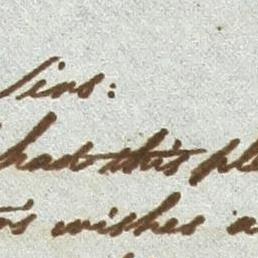 Sirs:
had this ple
wishes a